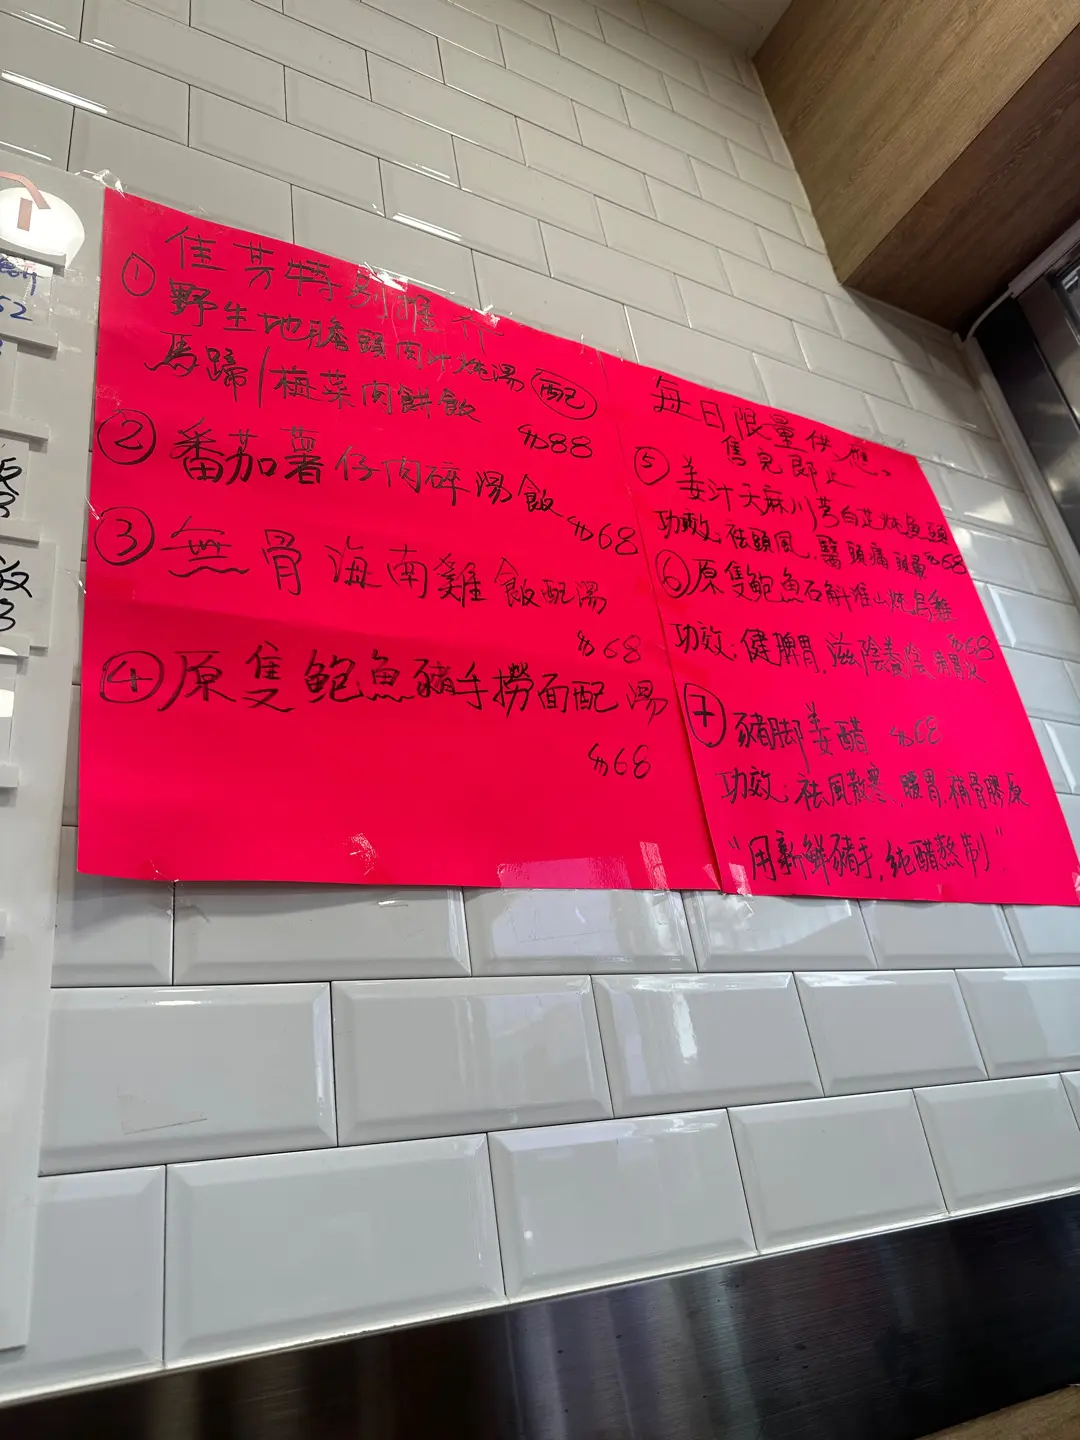 佳芳特別推介
① 野生地膽頭肉汁炖湯 配
馬蹄/梅菜肉餅飯
$88
② 番茄薯仔肉碎湯飯
$68
③ 無骨海南雞飯配湯
$68
④ 原隻鮑魚豬手撈面配湯
$68
每日限量供應。
售完即止
⑤ 姜汁天麻川芎白芷炖魚頭
功效:祛頭風,醫頭痛頭暈 $68
⑥ 原隻鮑魚石斛淮山炖烏雞
$68
功效:健脾胃,滋陰養陰,
⑦ 豬脚姜醋 $68
功效:祛風散寒,暖胃,補骨膠原
"用新鮮豬手,純醋熬制"
52